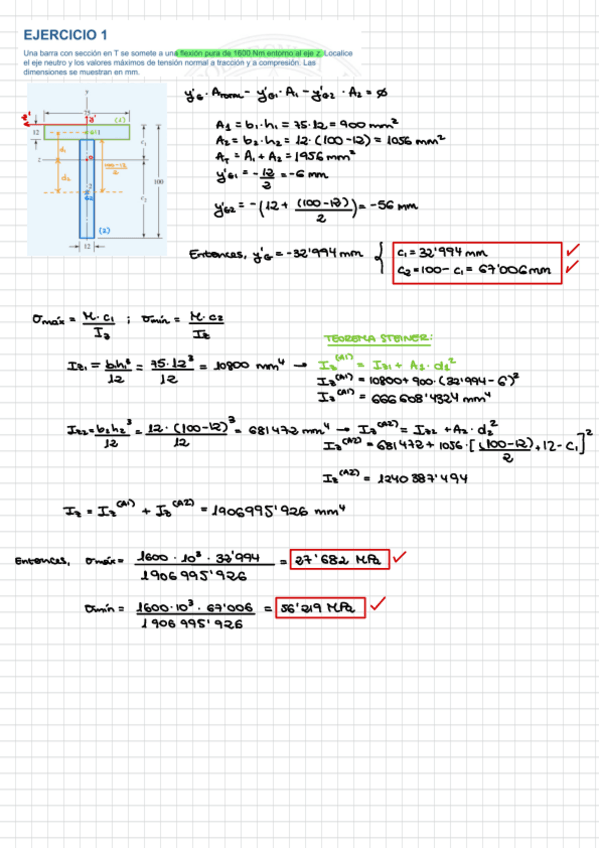 EJERCICIO 1
Una barra con sección en T se somete a una flexión pura de 1600 Nm entorno al eje z. Localice
el eje neutro y los valores máximos de tensión normal a tracción y a compresión. Las
dimensiones se muestran en mm.
y
75
(1)
12
G1
d1
c1
z
100-12
2
100
d2
G2
c2
(2)
12
y'G · ATOTAL - y'G1 · A1 - y'G2 · A2 = 0
A1 = b1·h1 = 75·12 = 900 mm²
A2 = b2·h2 = 12·(100-12) = 1056 mm²
AT = A1 + A2 = 1956 mm²
y'G1 = -12/2 = -6 mm
y'G2 = -(12 + (100-12)/2) = -56 mm
Entonces, y'G = -32'994 mm { c1 = 32'994 mm
c2 = 100 - c1 = 67'006 mm
σmáx = M·c1/Iz ; σmín = M·c2/Iz
TEOREMA STEINER:
Iz1 = b1h1³/12 = 75·12³/12 = 10800 mm⁴ → Iz^(A1) = Iz1 + A1·d1²
Iz^(A1) = 10800 + 900·(32'994 - 6)²
Iz^(A1) = 666 608'4324 mm⁴
Iz2 = b2h2³/12 = 12·(100-12)³/12 = 681472 mm⁴ → Iz^(A2) = Iz2 + A2·d2²
Iz^(A2) = 681472 + 1056·[(100-12)/2 + 12 - c1]²
Iz^(A2) = 1240387'494
Iz = Iz^(A1) + Iz^(A2) = 1906995'926 mm⁴
Entonces, σmáx = 1600·10³·32'994/1906995'926 = 27'682 MPa
σmín = 1600·10³·67'006/1906995'926 = 56'219 MPa